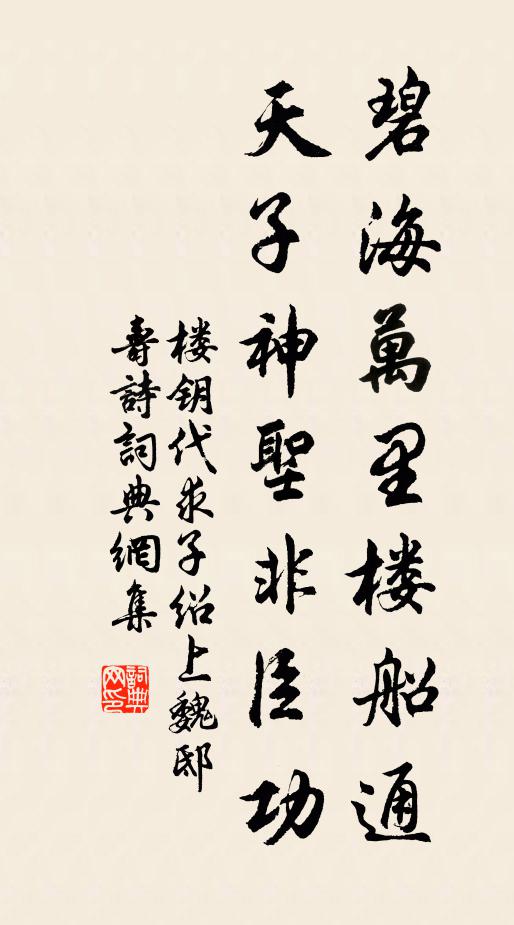 碧海萬里楼船通
天子神聖非臣功
楼钥代求子绍上魏邸
壽詩詞典網集
詞典
网印